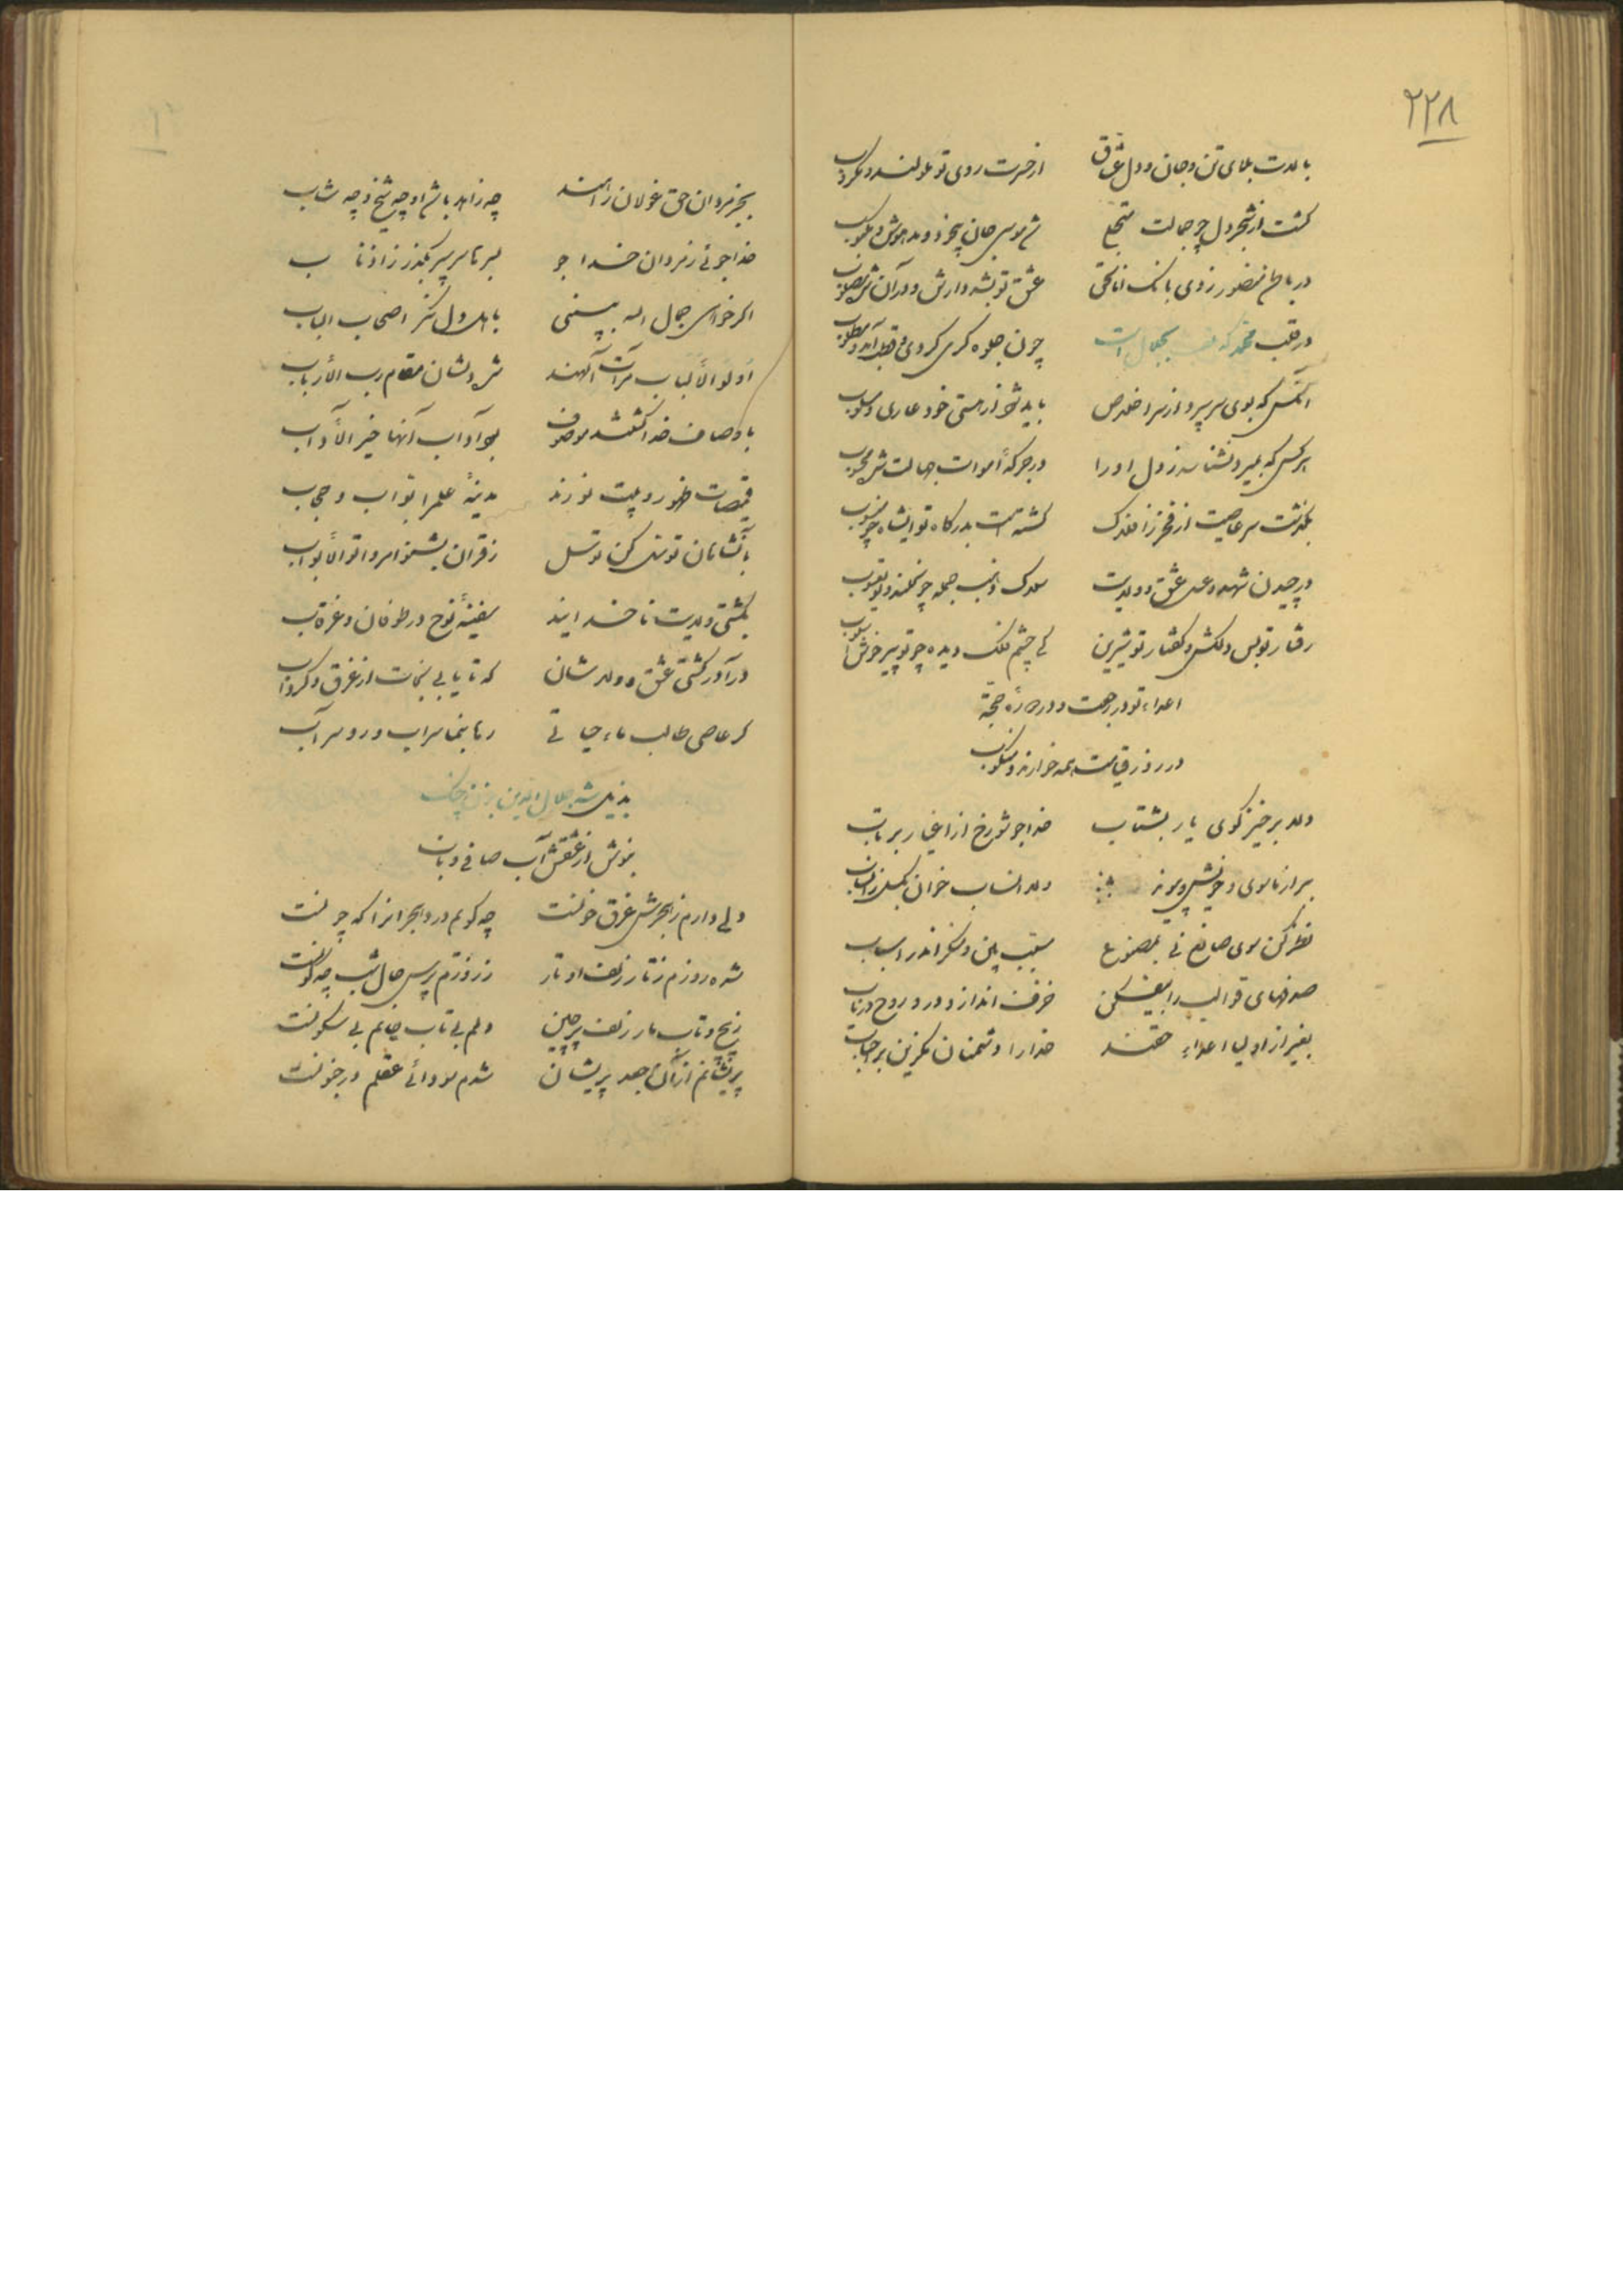 ۲۲۸
از حسرت روی تو
گشت از شجر دل چو جمالت متجلی
شد موسی جان بیخود و مدهوش و
در باطن منصور زدی بانک اناالحق
عشق تو بشد دارش و در آن شد مصلوب
در قلب محمد که
چون جلوه گری کردی و قطب آمد و مطلوب
آنکس که بوی سر سپرد از سر اخلاص
باید شود از هستی خود عاری و مسلوب
هر کس که بمیرد نشناسد ز دل او را
در جرگه اموات جهالت شده محسوب
بگذشت سر عاصیت از فخر ز افلاک
گشته است بدرگاه تو ایشاه چو منسوب
در چیدن شهد عسل عشق و ولایت
رفتار تو بس دلکش و گفتار تو شیرین
کی چشم فلک دیده چو تو پیر خوش اسلوب
اعداء تو در رجعت و در
در روز قیامت همه خوارند و منکوب
دلا برخیز کوی یار بشتاب
خدا جو شو رخ از اغیار برتاب
ببر از ماسوی و خویش و پیوند
نظر کن سوی صانع نی بمصنوع
مسبب بین و منگر اندر اسباب
صدفهای قوالب را بیفکن
خزف انداز و در و روح دریاب
بغیر از اولیا اعداء حقند
خدا را دشمنان مگزین بر احباب
بجز مردان حق غولان راهند
چه زاهد باشد او چه شیخ و چه شاب
خدا جوئی ز مردان خدا جو
اگر خواهی جمال اله ببینی
باهل دل نگر اصحاب الباب
اولوالألباب مرآت آلهند
شد دلشان مقام رب الأرباب
باوصاف خدا گشتند موصوف
بجو آداب آنها خیر الآداب
مدینهٔ علم را بواب و حجاب
بآنشاهان توسل کن توسل
ز قرآن بشنو امر واتوا الأبواب
بکشتی ولایت ناخدایند
سفینهٔ نوح در طوفان و غرقاب
درآ در کشتی عشق و ولاشان
که تا یابی نجات از غرق و گرداب
گر عاصی طالب ماء حیاتی
رها بنما سراب و رو سر آب
بذیل شه جلال الدین بزن چنک
بنوش از عشقش آب صافی و ناب
دلی دارم ز هجرش غرق خونست
چه گویم درد هجرانرا که چونست
شده روزم ز تار زلف او تار
ز روزم پرس حال شب چگونست
ز پیچ و تاب مار زلف پرچین
دلم بی تاب جانم بی سکونست
پریشانم از آن جعد پریشان
شدم سودائی عقلم در جنونست